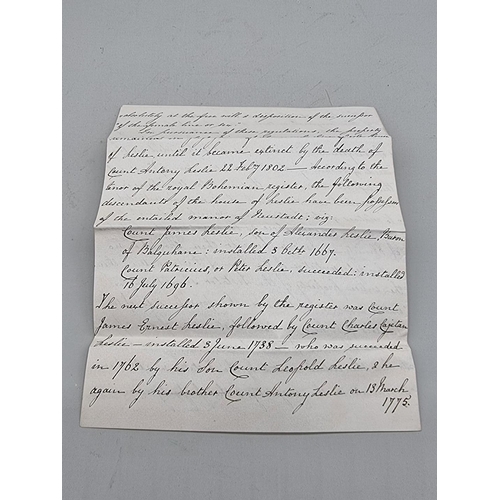 absolutely at the free will & disposition of the successor
"of the female line or sex."
In pursuance of these regulations, the property
remained in
of Leslie until it became extinct by the death of
Count Antony Leslie 22 Feby 1802 — According to the
tenor of the royal Bohemian register, the following
descendants of the house of Leslie have been possessors
of the entailed manor of Neustadt; viz:
Count James Leslie, son of Alexander Leslie, Baron
of Balquhane: installed 3 Octr 1667.
Count Patricius, or Peter Leslie, succeeded: installed
16 July 1696.
The next successor shown by the register was Count
James Ernest Leslie, followed by Count Charles Cajetan
Leslie — installed 3 June 1738 — who was succeeded
in 1762 by his Son Count Leopold Leslie, & he
again by his brother Count Antony Leslie on 13 March
1775.